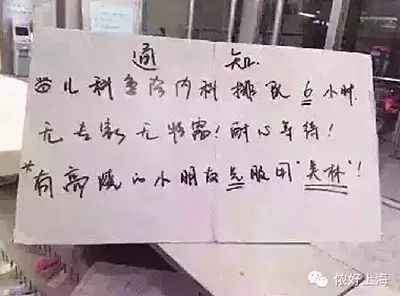 通 知
当儿科急诊内科排队6小时.
无专家无特需!耐心等待!
*有高烧的小朋友先服用"美林"!
侬好上海